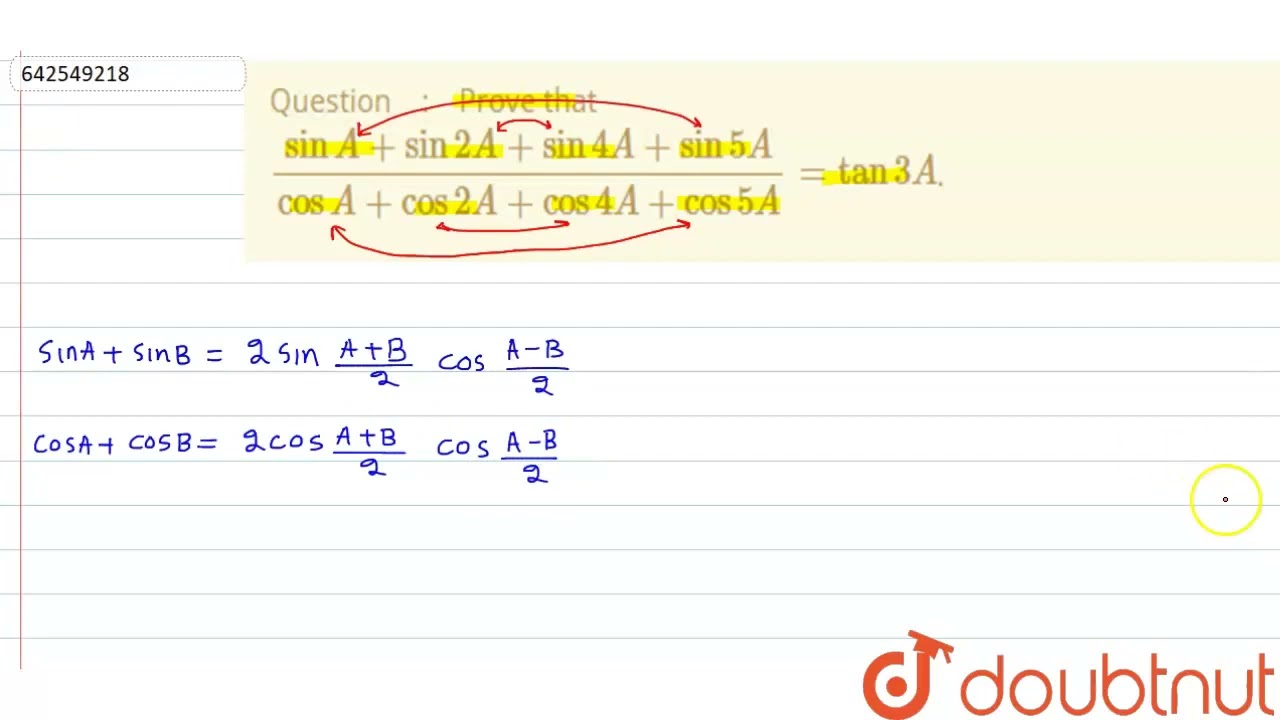 642549218
Question : Prove that
sin A + sin 2A + sin 4A + sin 5A
cos A + cos 2A + cos 4A + cos 5A
= tan 3A.
sinA + sinB = 2 sin A+B/2 cos A-B/2
cosA + cosB = 2cos A+B/2 cos A-B/2
doubtnut